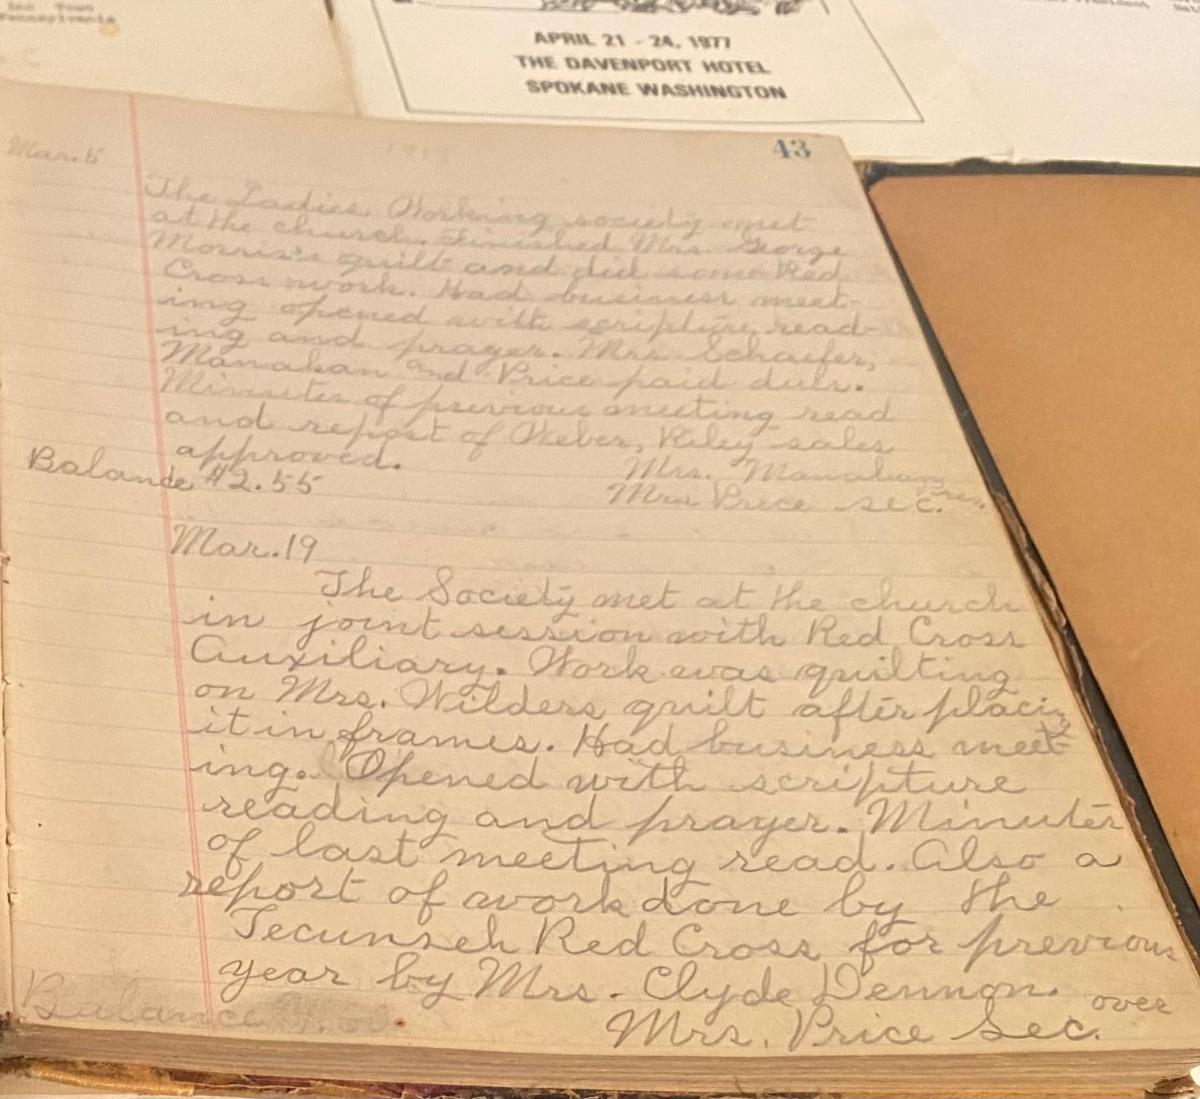 Pennsylvania
APRIL 21 - 24, 1977
THE DAVENPORT HOTEL
SPOKANE WASHINGTON
43
Mar. 5
The Ladies Working society met
at the church. Finished Mrs. George
Morris's quilt and did some Red
Cross work. Had business meet-
ing opened with scripture read-
ing and prayer. Mrs. Schaefer,
Manahan and Price paid dues.
Minutes of previous meeting read
and report of Weber, Riley sales
approved.
Mrs. Manahan Pres.
Balance $2.55
Mrs Price sec.
Mar. 19
The Society met at the church
in joint session with Red Cross
Auxiliary. Work was quilting
on Mrs. Wilders quilt after placing
it in frames. Had business meet-
ing. Opened with scripture
reading and prayer. Minutes
of last meeting read. Also a
report of work done by the
Tecumseh Red Cross for previous
year by Mrs. Clyde Dennon. over
Balance
Mrs. Price Sec.